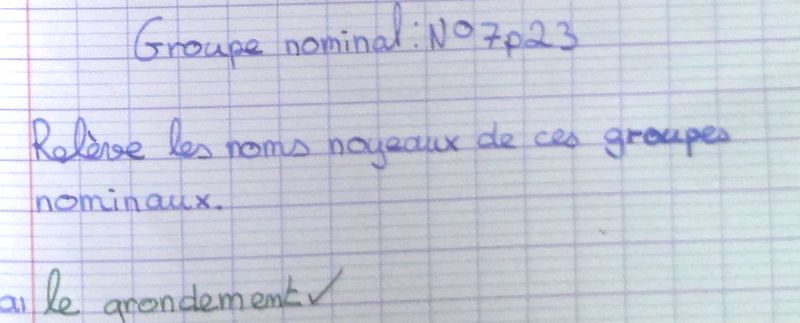 Groupe nominal : N°7p23
Relève les noms noyeaux de ces groupes
nominaux.
a) le grondement ✓